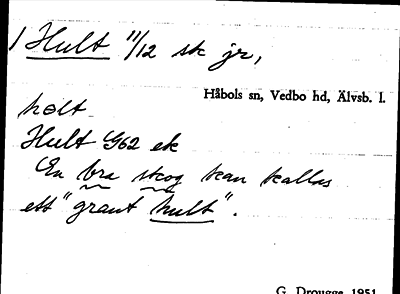 1 Hult 11/12 sk jr,
Håbols sn, Vedbo hd, Älvsb. l.
hølt
Hult G62 ek
En bra skog kan kallas
ett "grant hult".
G. Drougge 1951